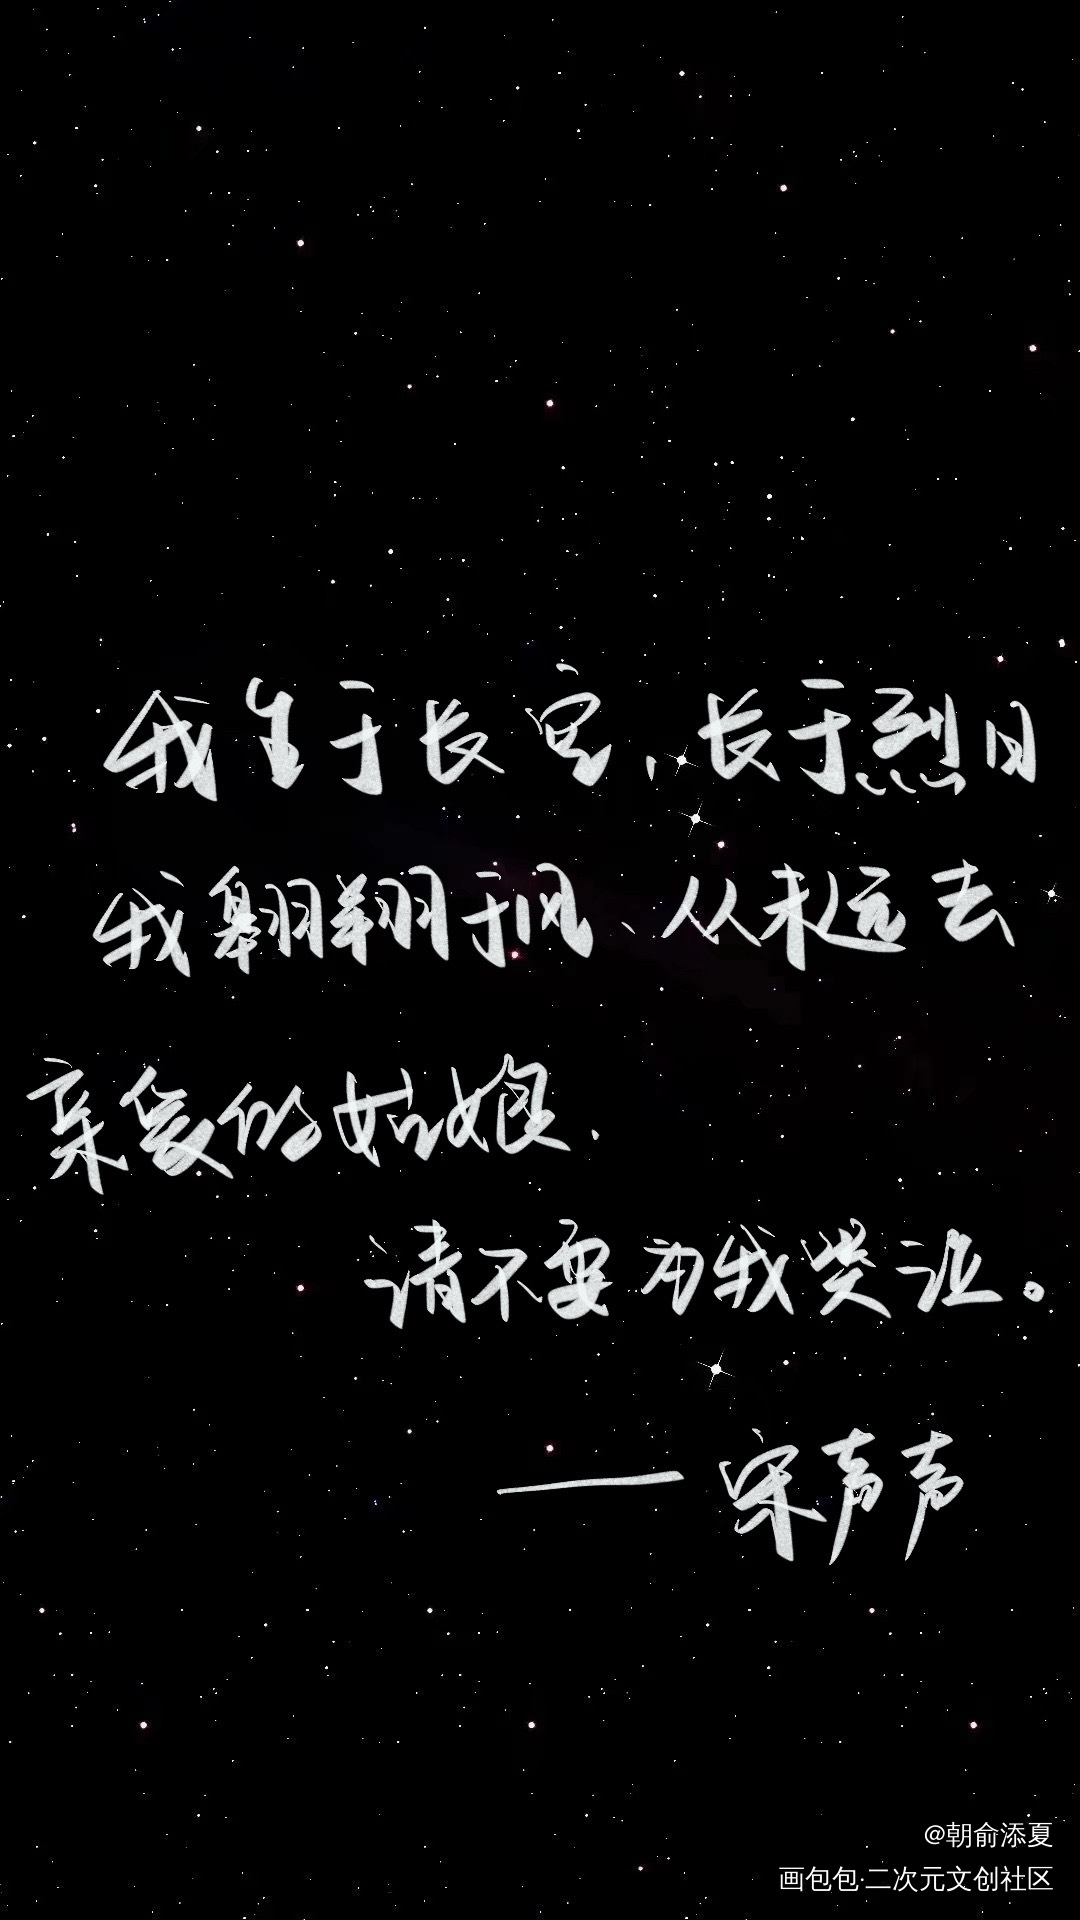 我生于长空，长于烈日
我翱翔于风、从未远去
亲爱的姑娘，
请不要为我哭泣。
——宋声声
@朝俞添夏
画包包·二次元文创社区